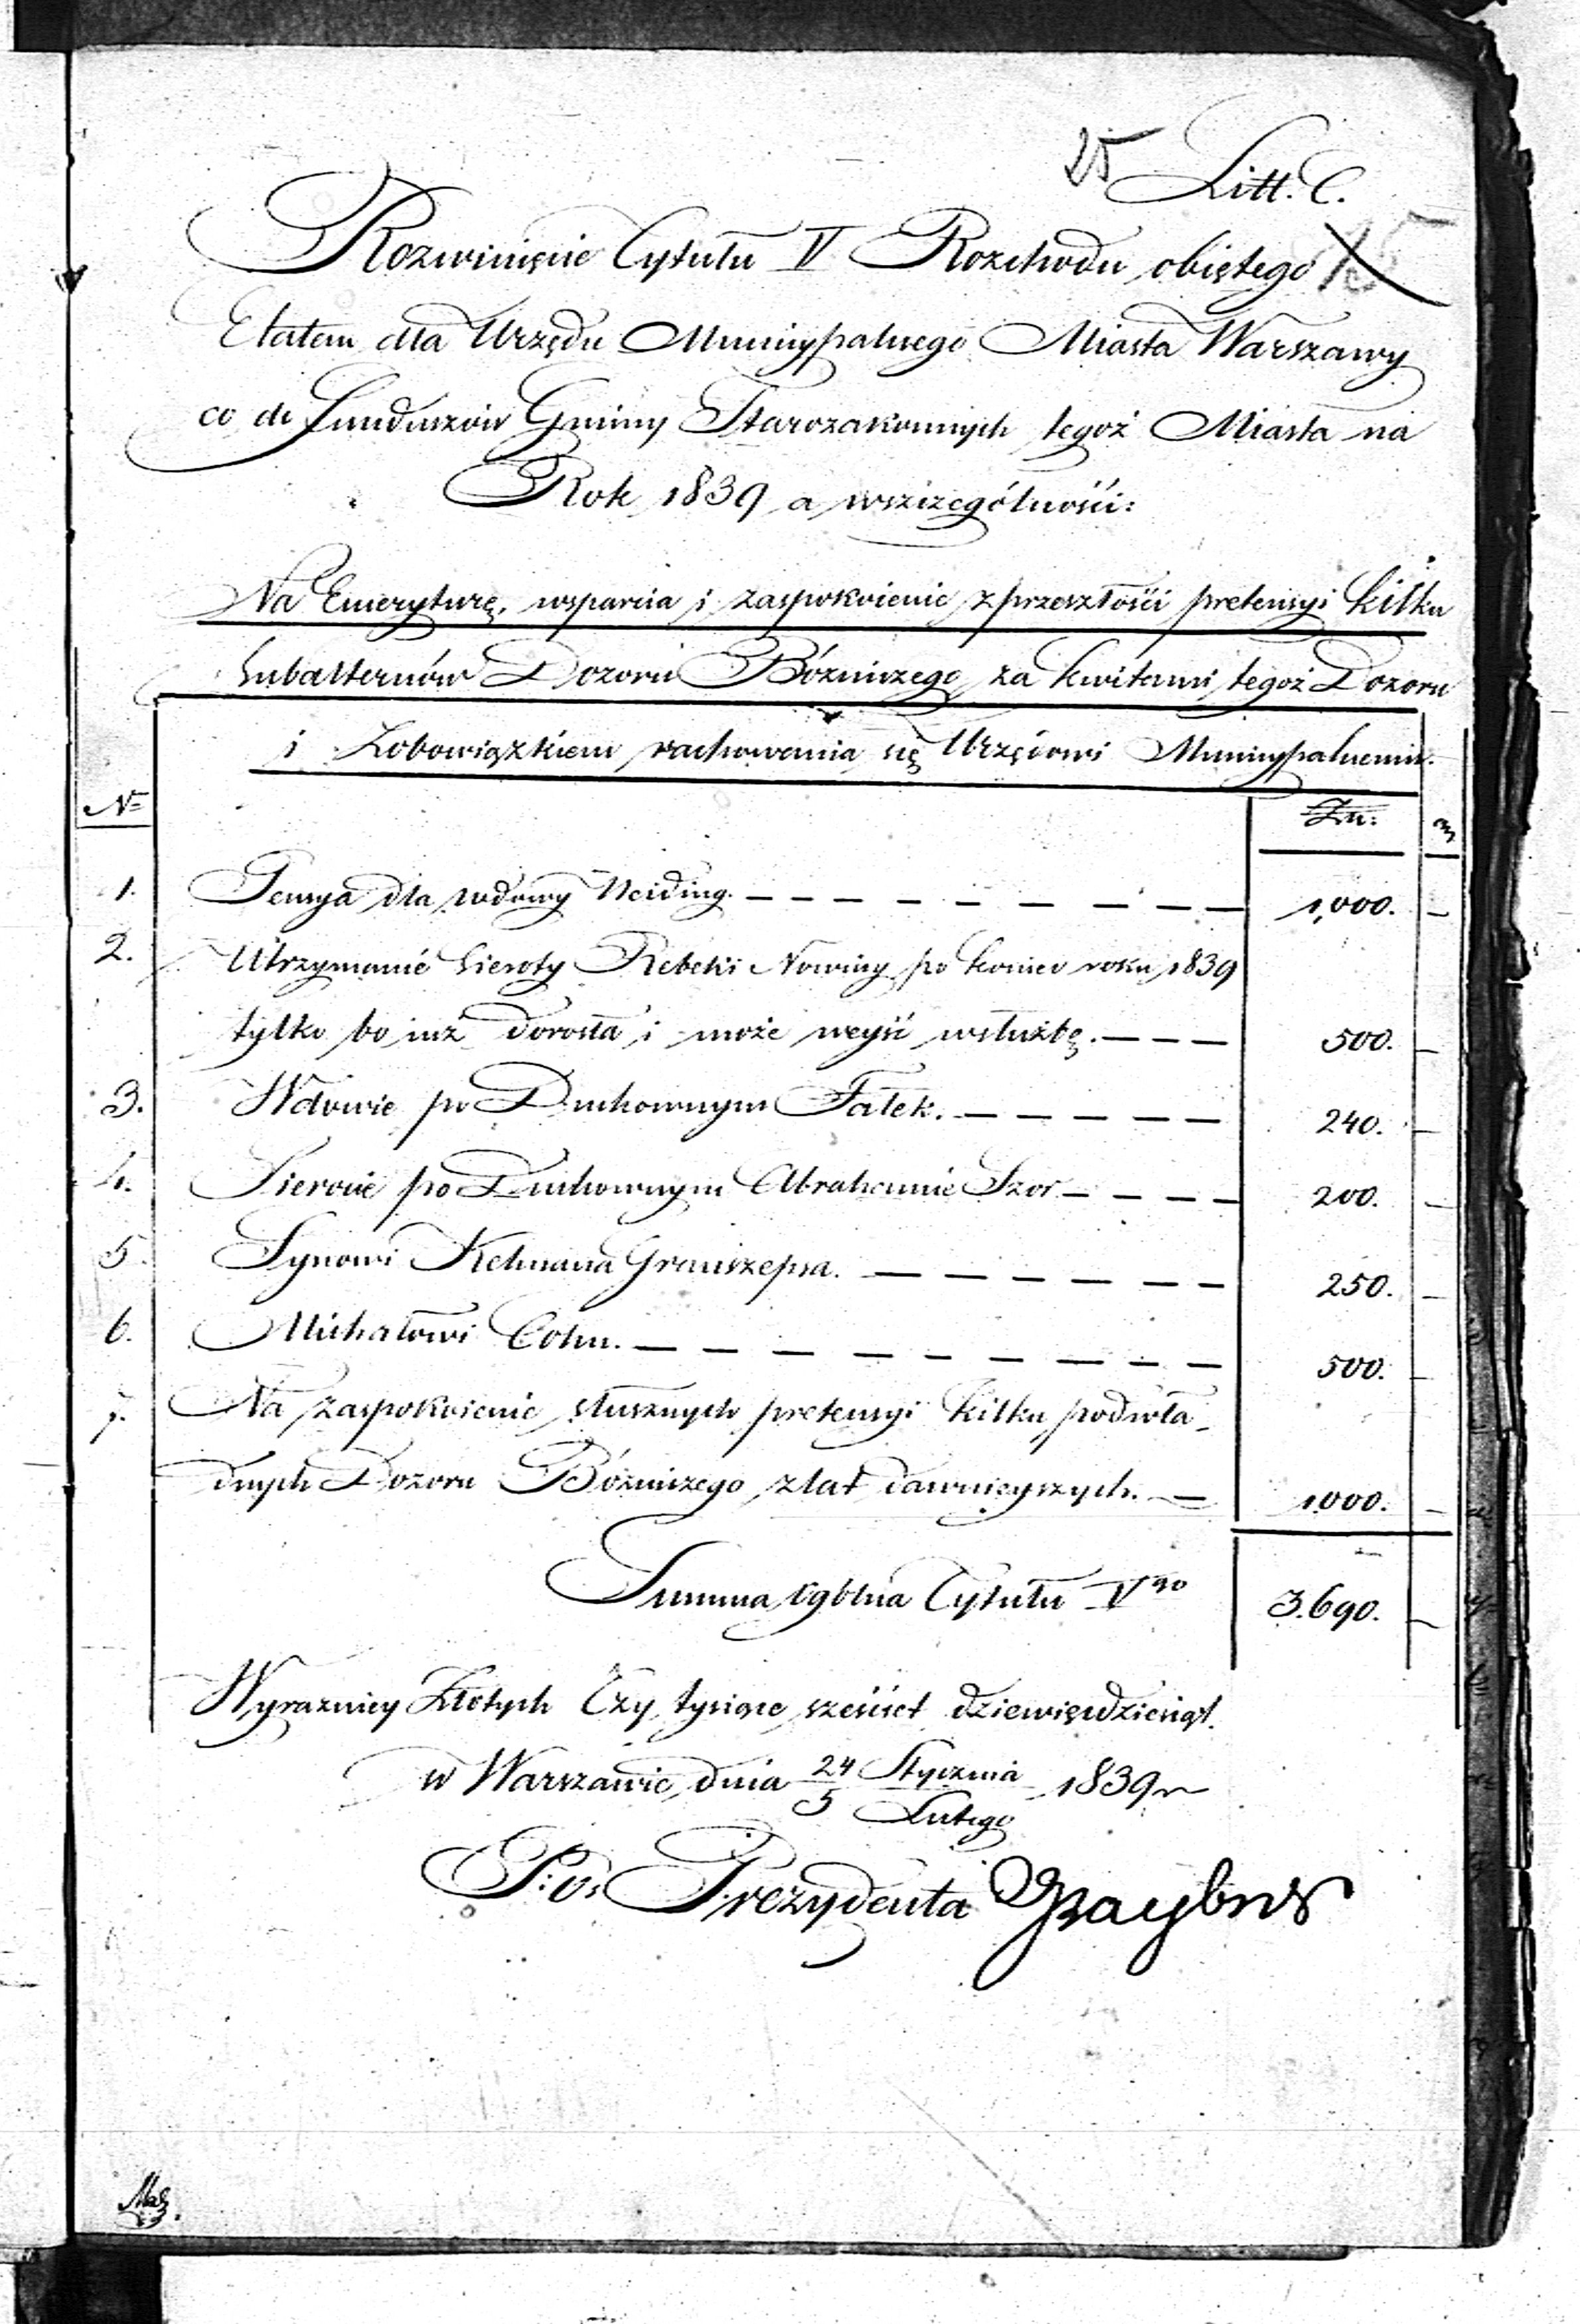 25 Litt. C.
Rozwinięcie Tytułu V Rozchodu obiętego
Etatem dla Urzędu Municypalnego Miasta Warszawy
co do Funduszów Gminy Starozakonnych tegoż Miasta na
Rok 1839 a wszczególności:
Na Emeryturę, wsparcia i zaspokoienie z przeszłości pretensyi kilku
Subalternów Dozoru Bóżniczego za kwitami tegoż Dozoru
i Zobowiązkiem rachowania się Urzędowi Municypalnemu.
No Zło:
1. Pensya dla wdowy Neiding. 1,000. —
2. Utrzymanie Sieroty Rebeki Nowiny po koniec roku 1839
tylko bo iuż dorosła i może weyść wsłużbę. 500. —
3. Wdowie po Duchownym Fałek. 240. —
4. Sierocie po Duchownym Abrahamie Szor 200. —
5. Synowi Kelmana 250. —
6. Michałowi Cohn. 500. —
7. Na zaspokoienie słusznych pretensyi kilku podwła-
dnych Dozoru Bóżniczego z lat dawnieyszych. 1000. —
Summa ogólna Tytułu Vgo 3.690. —
Wyraźniey Złotych Trzy tysiące sześćset dziewięćdziesiąt.
w Warszawie dnia 24 Stycznia / 5 Lutego 1839 r
P. o. Prezydenta Graybner